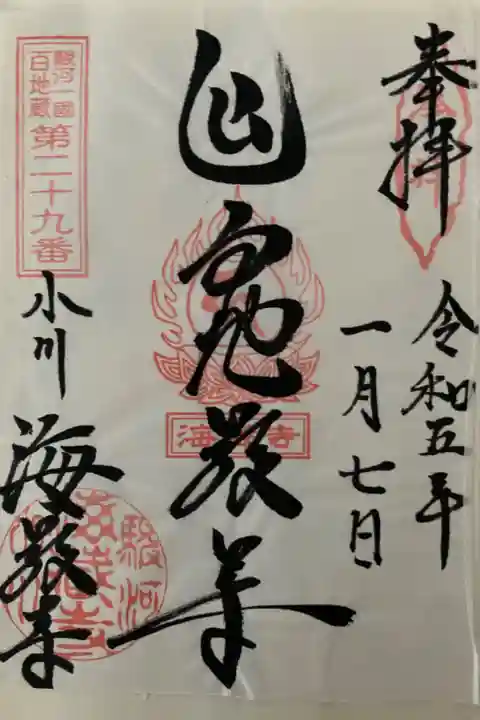 奉拝
令和五年
一月七日
延命地蔵尊
海蔵寺
駿河一國
百地蔵
第二十九番
小川
海蔵寺
駿河